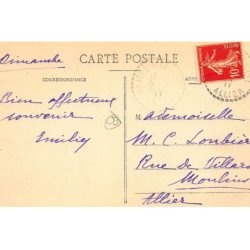 Dimanche
CARTE POSTALE
CORRESPONDANCE
Bien affectueux
souvenir
Emilie
Mademoiselle
M. C. Loubier
Rue de Villars
Moulins
Allier
10
17
ALLIER